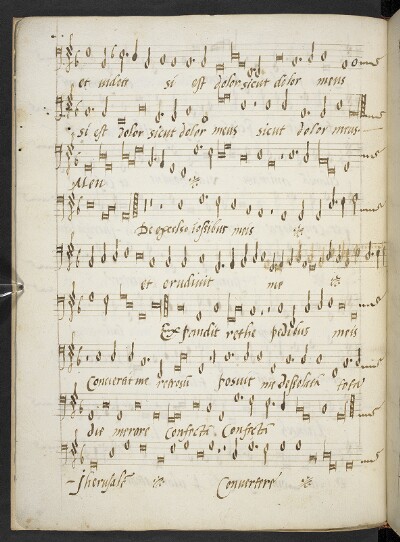 et videte si est dolor sicut dolor meus
si est dolor sicut dolor meus sicut dolor meus
Men
De excelso ossibus meis
et erudivit me
Expandit rethe pedibus meis
Convertit me retrorsu posuit me desolata tota
die merore confecta Confecta
Jherusalē Convertere